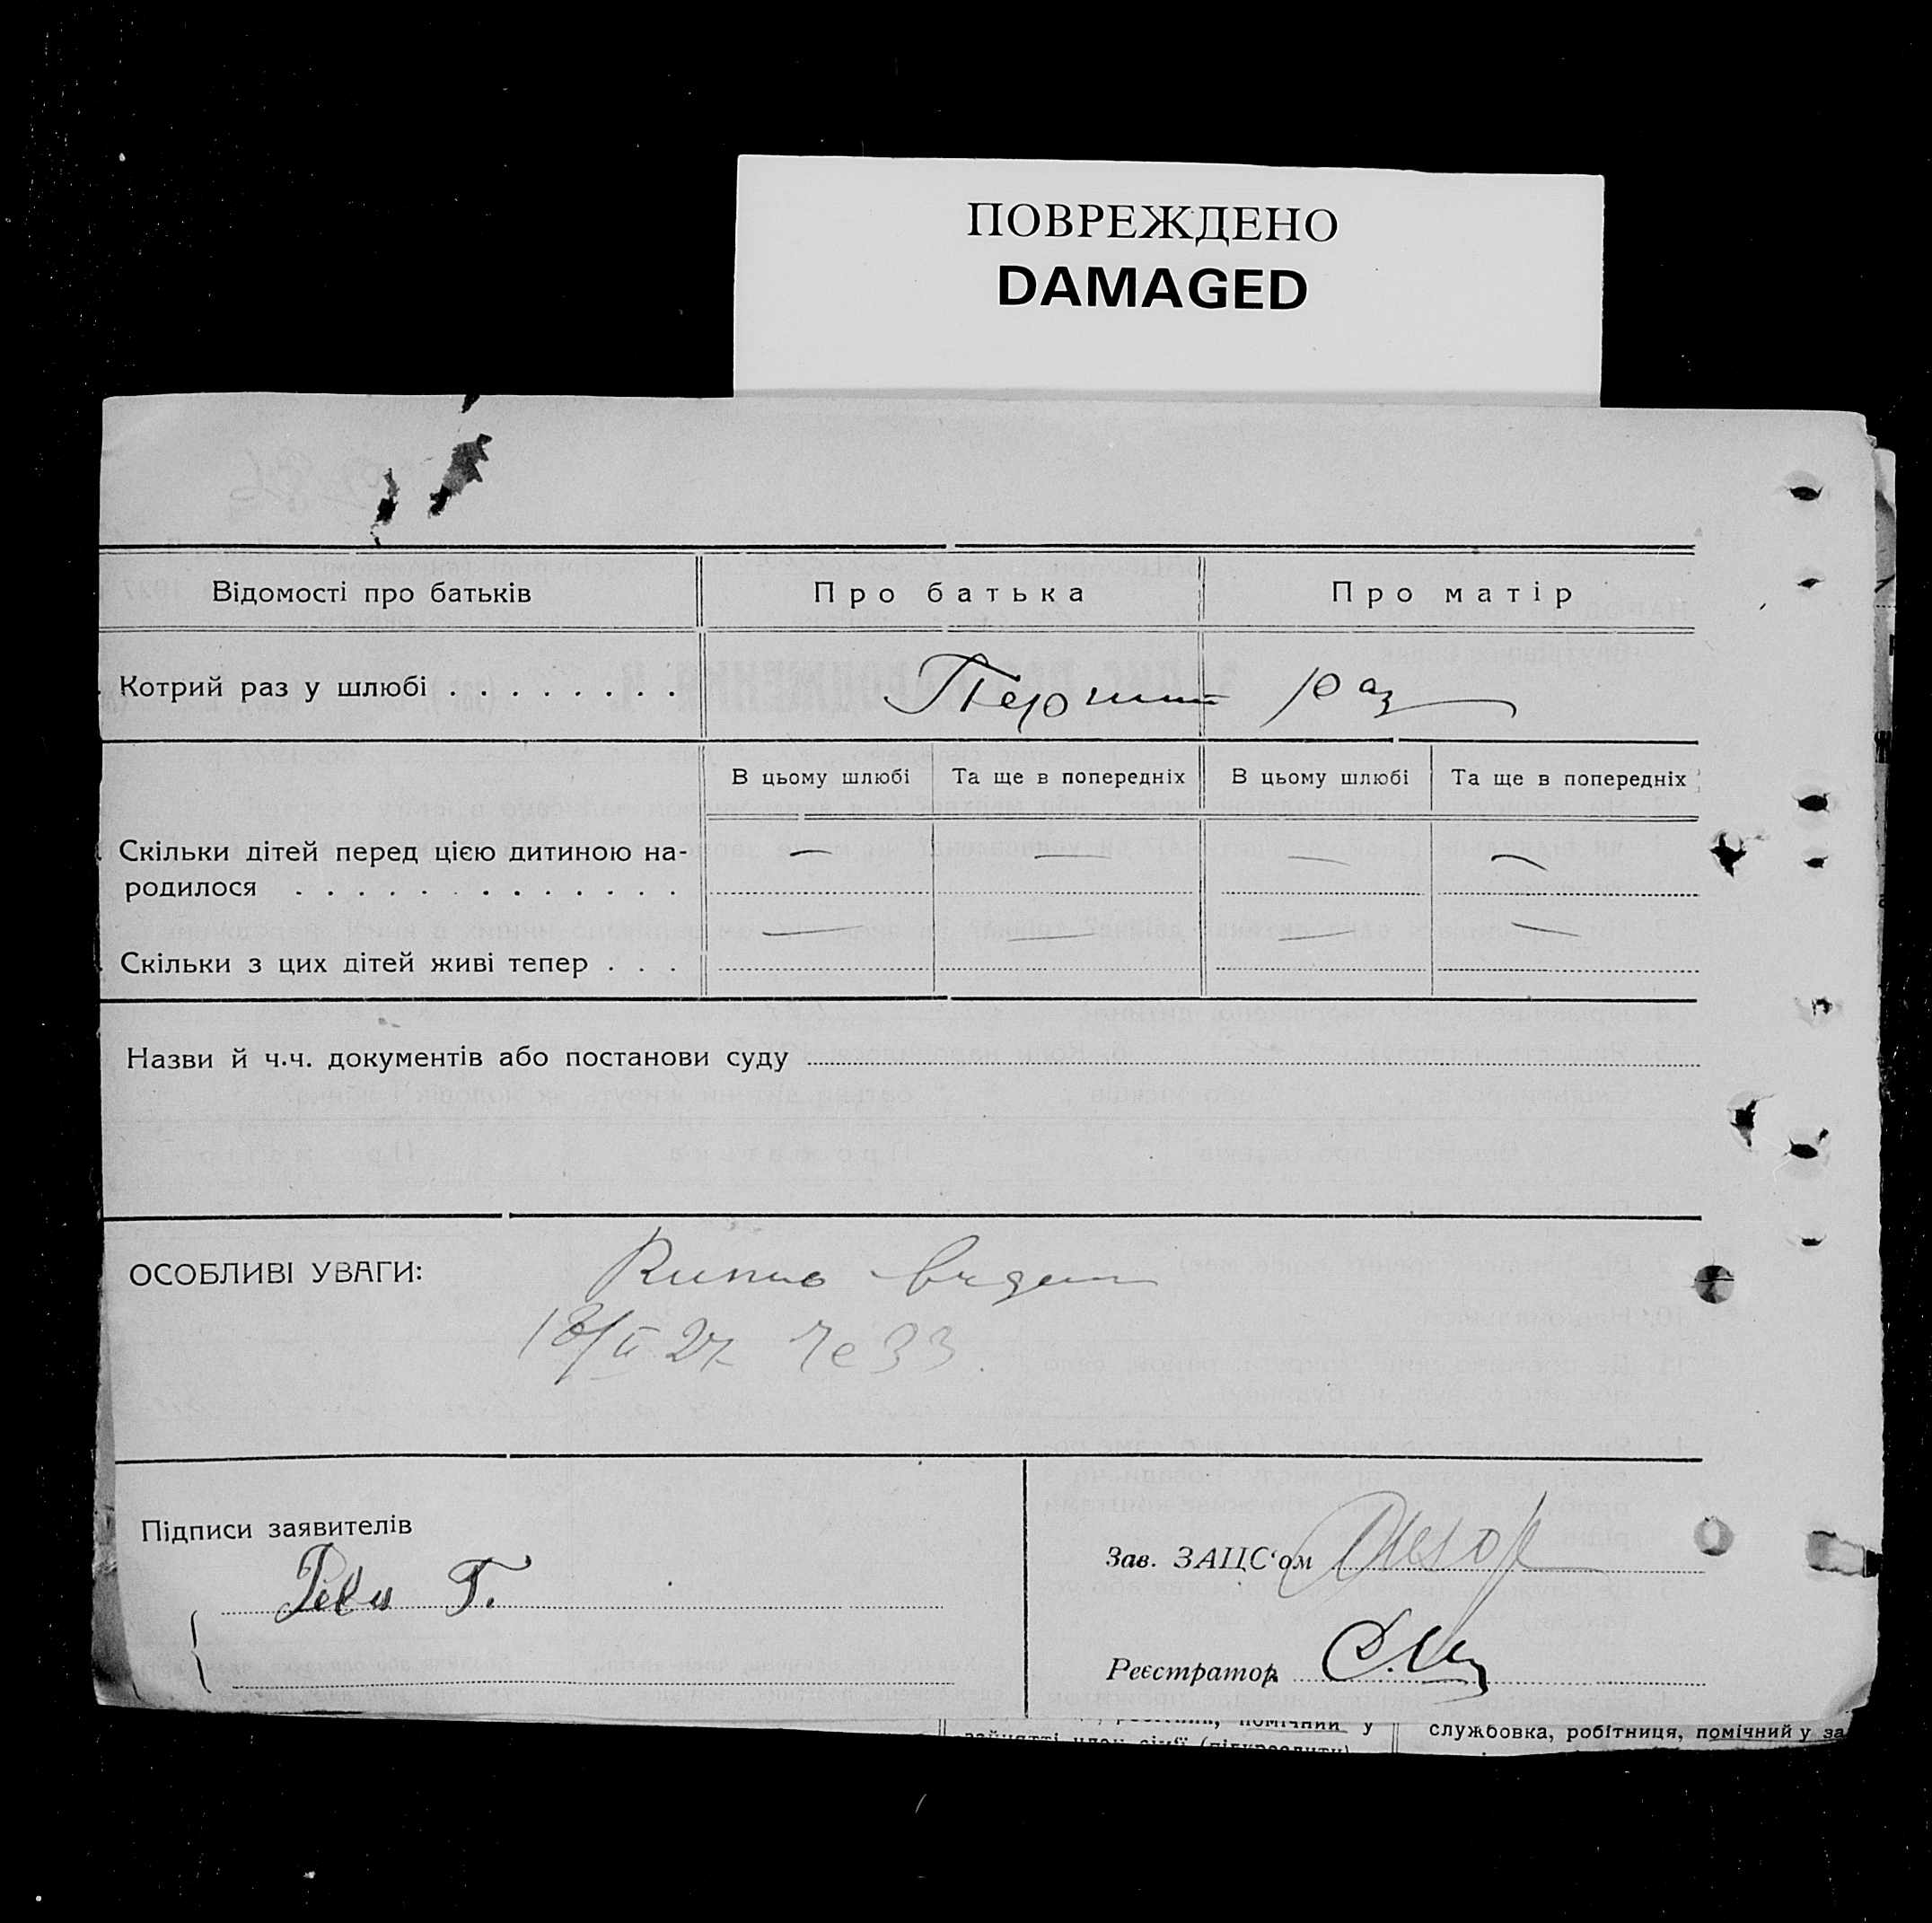 ПОВРЕЖДЕНО
DAMAGED
Відомості про батьків
Про батька
Про матір
Котрий раз у шлюбі . . . . . . . .
Перший раз
В цьому шлюбі
Та ще в попередніх
В цьому шлюбі
Та ще в попередніх
Скільки дітей перед цією дитиною на-
родилося . . . . . . . . . . . . .
— — — —
Скільки з цих дітей живі тепер . . .
— — — —
Назви й ч.ч. документів або постанови суду
ОСОБЛИВІ УВАГИ:
18/II 27 33.
Підписи заявителів
Г.
Зав. ЗАЦС‘ом
Реєстратор
помічний у
службовка, робітниця, помічний у за